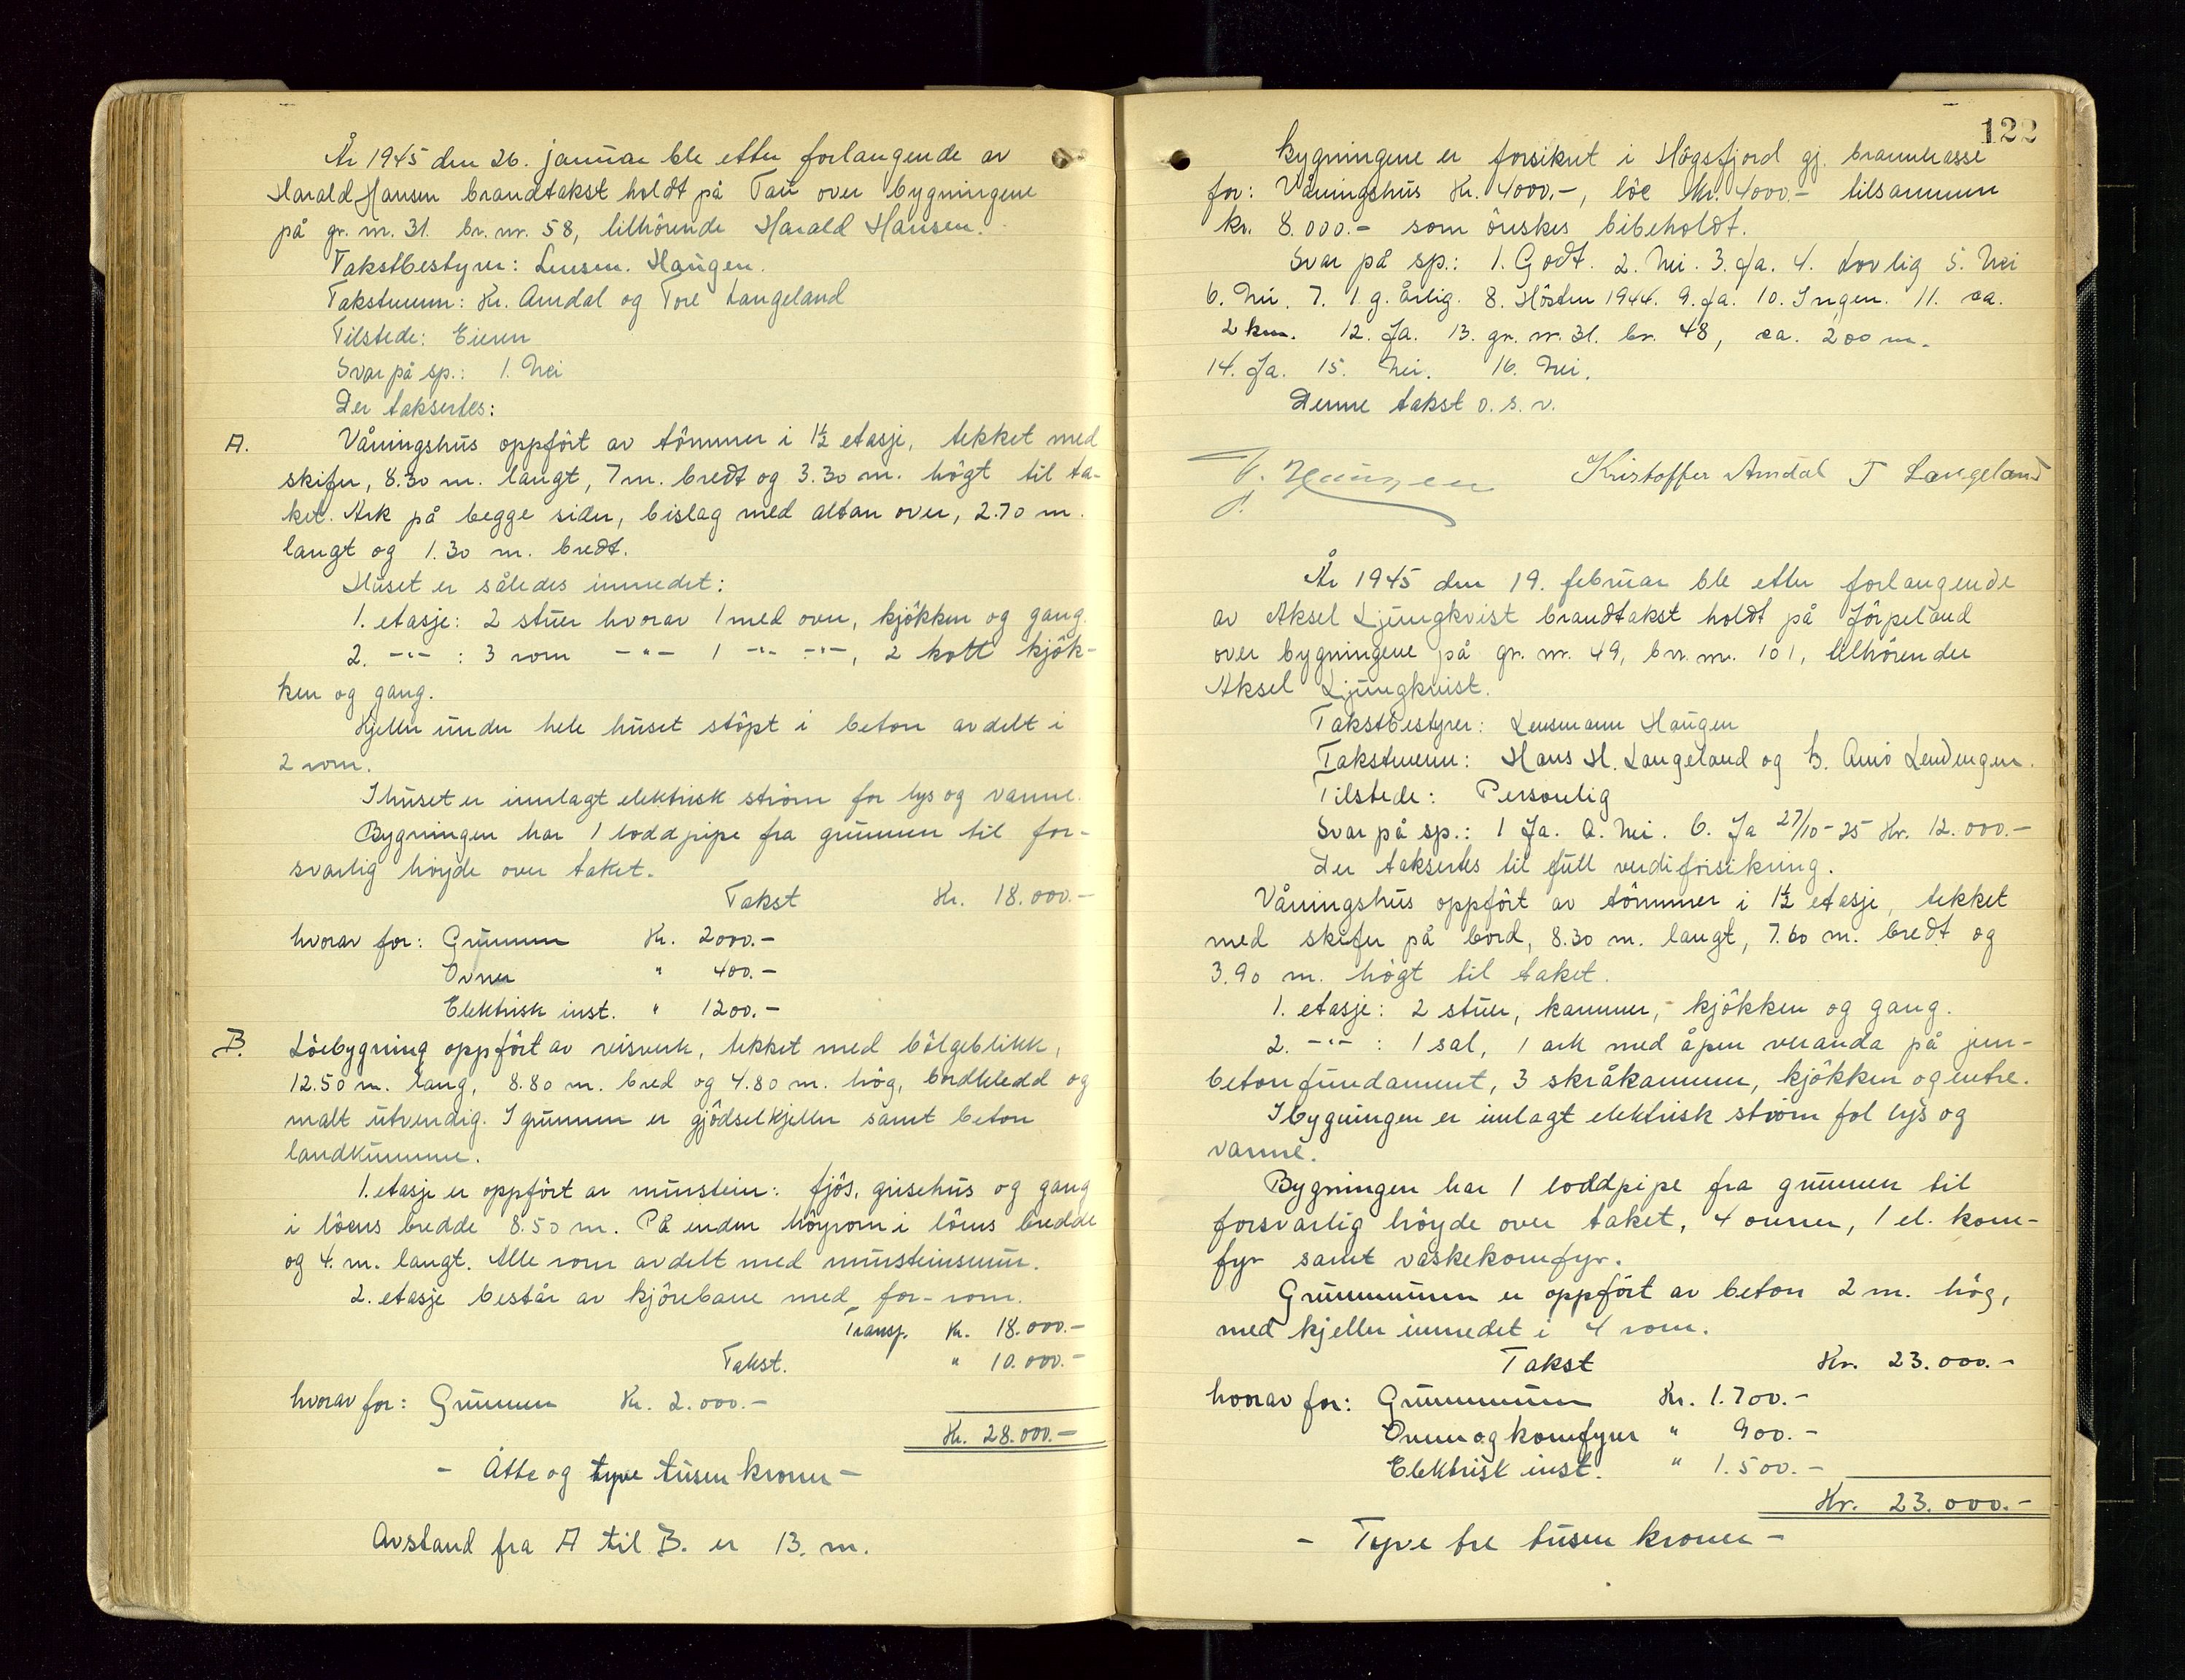 År 1945 den 26. januar ble etter forlangende av
Harald Hansen brandtakst holdt på Tau over bygningene
på gr. nr. 31. br. nr. 58, tilhörende Harald Hansen.
Takstbestyrer: Lensm. Haugen.
Takstmenn: Kr. Amdal og Tore Langeland
Tilstede: Eieren
Svar på sp.: 1. Nei
Der taksertes:
A. Våningshus oppfört av tömmer i 1½ etasje, tekket med
skifer, 8.30 m. langt, 7 m. bredt og 3.30 m. högt til ta-
ket. Ark på begge sider, bislag med altan over, 2.70 m.
langt og 1.30 m. bredt.
Huset er således innredet:
1. etasje: 2 stuer hvorav 1 med oven, kjökken og gang.
2. -"- : 3 rom -"- 1 -"- -"-, 2 kott kjök-
ken og gang.
Kjeller under hele huset stöpt i beton avdelt i
2 rom.
I huset er innlagt elektrisk ström for lys og varme.
Bygningen har 1 loddpipe fra grunnen til for-
svarlig höyde over taket.
Takst Kr. 18.000.-
hvorav for: Grunnen Kr. 2000.-
Ovner " 400.-
Elektrisk inst. " 1200.-
B. Löebygning oppfört av reisverk, tekket med bölgeblikk,
12.50 m. lang, 8.80 m. bred og 4.80 m. hög, bordkledd og
malt utvendig. I grunnen er gjödselkjeller samt beton
landkumme.
1. etasje er oppfört av murstein: fjös, grisehus og gang
i löens bredde 8.50 m. På enden höyrom i löens bredde
og 4. m. langt. Alle rom avdelt med mursteinsmur.
2. etasje består av kjörebane med for-rom.
Transp. Kr. 18.000.-
Takst. " 10.000.-
hvorav for: Grunnen Kr. 2.000.-
Kr. 28.000.-
- Åtte og tyve tusen kroner -
Avstand fra A til B. er 13. m.
122
Bygningene er forsikret i Högsfjord gj. brannkasse
for: Våningshus Kr. 4000.-, löe Kr. 4000.- tilsammen
kr. 8.000.- som önskes bibeholdt.
Svar på sp.: 1. Godt. 2. Nei. 3. Ja. 4. Lovlig 5. Nei
6. Nei. 7. 1 g. årlig. 8. Hösten 1944. 9. Ja. 10. Ingen. 11. ca.
2 km. 12. Ja. 13. gr. nr. 31. br. 48, ca. 200 m.
14. Ja. 15. Nei. 16. Nei.
Denne takst o. s. v.
Haugen Kristoffer Amdal T Langeland
År 1945 den 19. februar ble etter forlangende
av Aksel Ljungkvist brandtakst holdt på Jörpeland
over bygningene på gr. nr. 49, br. nr. 101, tilhörende
Aksel Ljungkvist.
Takstbestyrer: Lensmann Haugen
Takstmenn: Hans H. Langeland og
Tilstede: Personlig
Svar på sp.: 1 Ja. a. Nei. b. Ja 27/10-25 Kr. 12.000.-
Der taksertes til full verdiforsikring.
Våningshus oppfört av tömmer i 1½ etasje, tekket
med skifer på bord, 8.30 m. langt, 7.60 m. bredt og
3.90 m. högt til taket.
1. etasje: 2 stuer, kammer, kjökken og gang.
2. -"- : 1 sal, 1 ark med åpen veranda på jern-
betonfundament, 3 skråkammer, kjökken og entre.
I bygningen er innlagt elektrisk ström fol lys og
varme.
Bygningen har 1 loddpipe fra grunnen til
forsvarlig höyde over taket, 4 ovner, 1 el. kom-
fyr samt vaskekomfyr.
Grunnmuren er oppfört av beton 2 m. hög,
med kjeller innredet i 4 rom.
Takst Kr. 23.000.-
hvorav for: Grunnmuren Kr. 1.700.-
Ovner og komfyrer " 900.-
Elektrisk inst. " 1.500.-
Kr. 23.000.-
- Tyve tre tusen kroner -